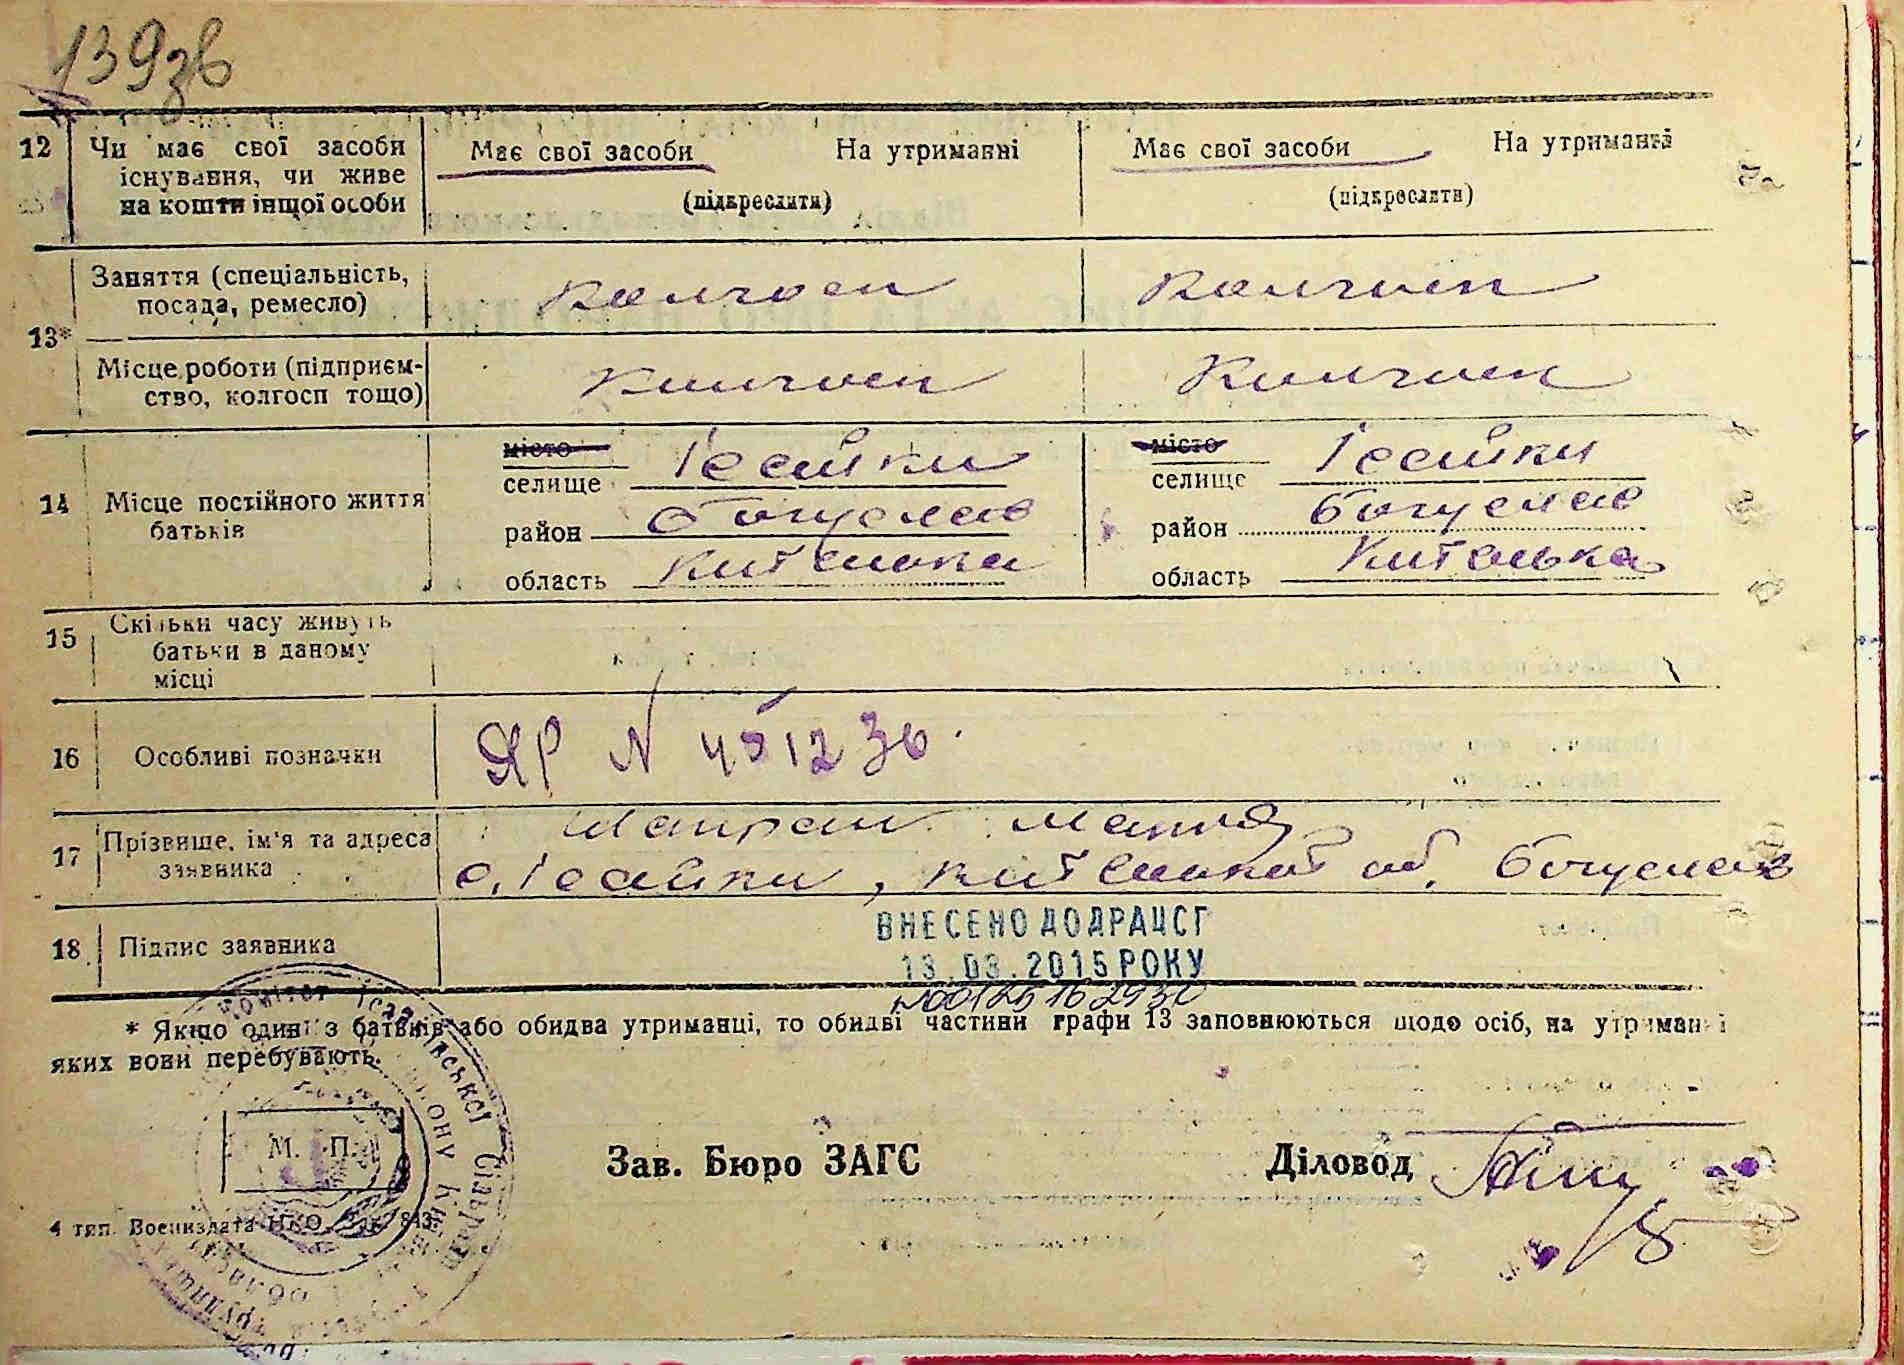 139зв
12 Чи має свої засоби існування, чи живе на кошти іншої особи
Має свої засоби На утриманні
(підкреслити)
Має свої засоби На утриманні
(підкреслити)
13*
Заняття (спеціальність, посада, ремесло)
Колгосп Колгосп
Місце роботи (підприєм-
ство, колгосп тощо)
Колгосп Колгосп
14 Місце постійного життя батьків
місто
селище Ісайки
район Богуслав
область Київська
місто
селище Ісайки
район Богуслав
область Київська
15 Скільки часу живуть батьки в даному місці
16 Особливі позначки
ЯР N
17 Прізвище, ім'я та адреса заявника
с. Ісайки, Київської об. Богуслав
18 Підпис заявника
ВНЕСЕНО ДО ДРАЦСГ
13.03.2015 РОКУ
* Якщо один з батьків або обидва утриманці, то обидві частини графи 13 заповнюються щодо осіб, на утриманні
яких вони перебувають.
М. П.
Зав. Бюро ЗАГС Діловод
4 тип. Воениздата НКО